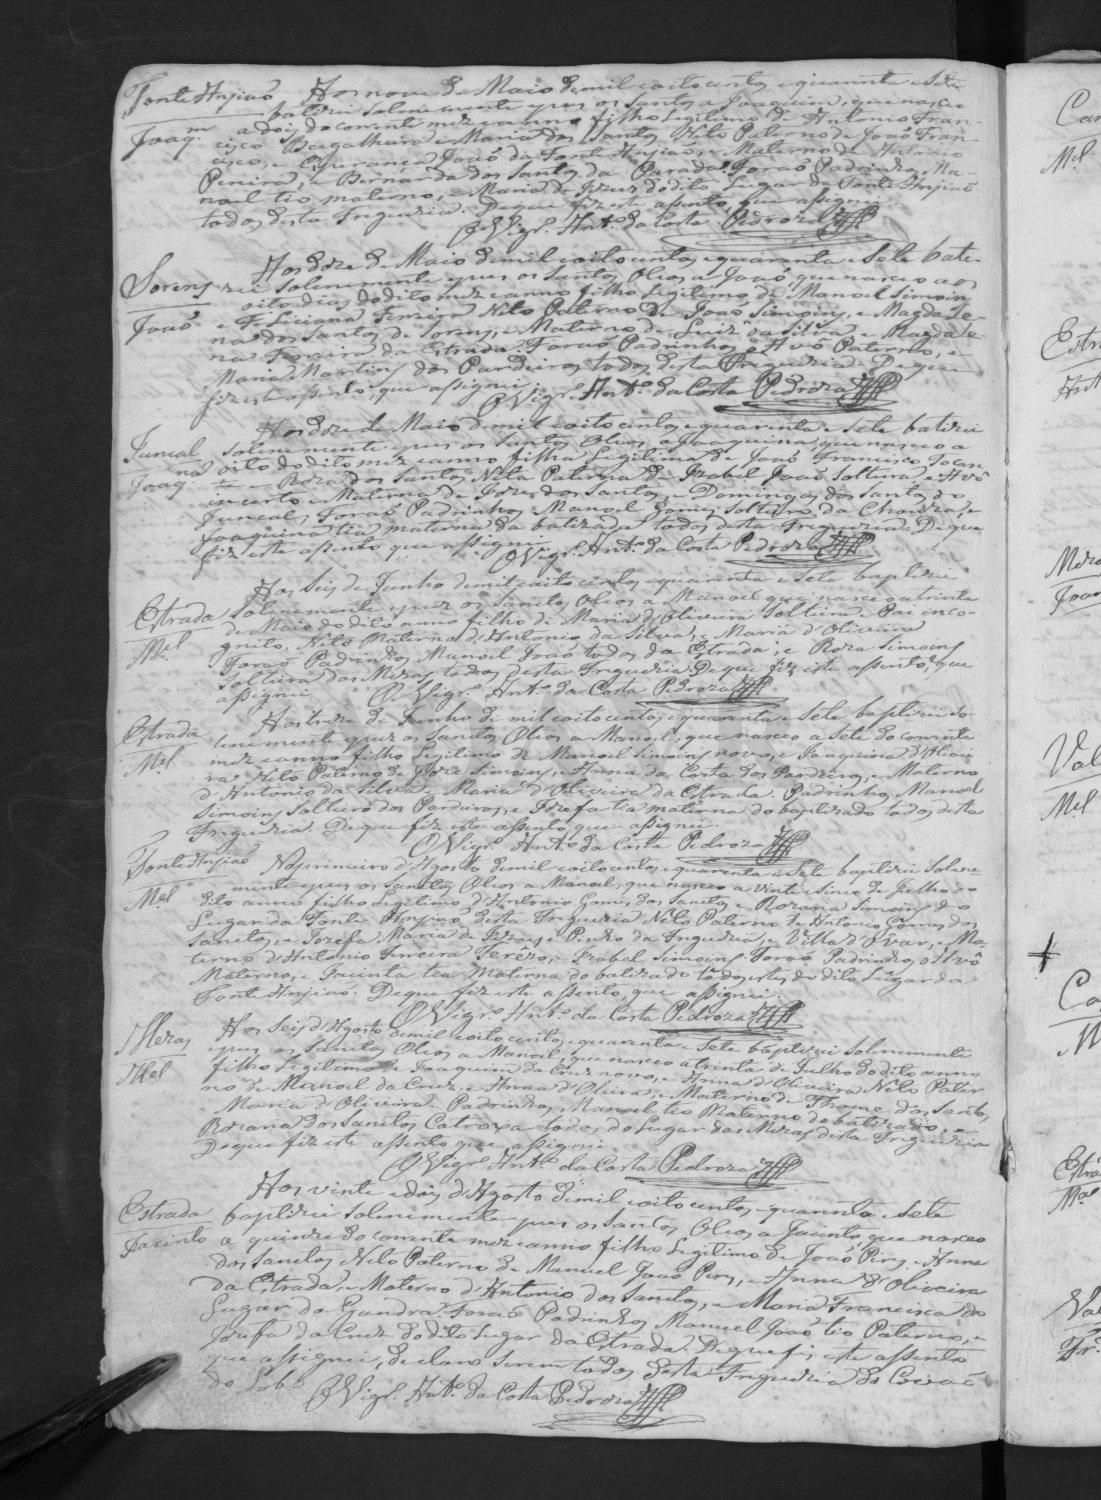 Fonte Anjiaõ
Joaq.m
Aos nove de Maio de mil e oito centos e quarenta e Sete
batizei solenemente e puz os Santos a Joaquim, que nasceo
a dois do corrente mez e anno, filho Legitimo de Antonio Fran-
cisco e Maria dos Santos Neto Paterno de Joaõ Fran-
cisco, e Joaõ da Fonte Anjiaõ, e Materno de Antonio
Pereira, e Bernarda dos Santos da Foraõ Padrinhos Ma-
noel tio materno, e Maria de Jezus do dito Lugar da Fonte Anjiaõ
todos desta Freguezia. De que fiz este assento, que assignei.
O Vigr.o Ant.o da Costa Pedroza
Sorens
Joaõ
Aos doze de Maio de mil e oito centos e quarenta e Sete bati-
zei Solenemente e puz os Santos Oleos a Joaõ que nasceo aos
oito dias do dito mez e anno filho Legitimo de Manoel Simoins
e Feliciana Fereira Neto Paterno de Joaõ Simoins, e Magdale-
na dos Santos de Sorens, e Materno de Luiz da Silva e Magdale-
na Fereira da Estrada Foraõ Padrinhos o Avô Paterno, e
Maria Martins dos Pardieiros todos desta Freguezia De que
fiz este assento, que assignei
O Vigr.o Ant.o da Costa Pedroza
Juncal
Joaq.na
Aos doze de Maio de mil e oito centos e quarenta e Sete batizei
solenemente e puz os Santos Oleos a Joaquina, que nasceo a
oito do dito mez e anno filha Legitima de Joaõ Francisco
e Roza dos Santos Neta Paterna de Izabel Joaõ Solteira, e Avô
incerto e Materna de Joze dos Santos, e Domingas dos Santos do
Juncal, Foraõ Padrinhos Manoel Gomes Solteiro da Chouza, e
Joaquina tia materna da batizada todos desta Freguezia De que
fiz este assento que assignei
O Vigr.o Ant.o da Costa Pedroza
Estrada
M.el
Aos Seis de Junho de mil e oito centos e quarenta e Sete baptizei
solenemente e puz os Santos Oleos a Manoel que nasceo a trinta
de Maio do dito anno filho de Maria d'Oliveira Solteira Pai inco-
gnito, Neto Materno d'Antonio da Silva, e Maria d'Oliveira
Foraõ Padrinhos Manoel Joaõ todos da Estrada, e Roza Simoins
Solteira das Mezas todos desta Freguezia De que fiz este assento, que
assignei
O Vigr.o Ant.o da Costa Pedroza
Estrada
M.el
Aos treze de Junho de mil e oito centos e quarenta e Sete baptizei so-
lenemente e puz os Santos Oleos a Manoel, que nasceo a sete do corrente
mez e anno filho Legitimo de Manoel Simoins novo, e Joaquina d'Olivei-
ra Neto Paterno de Joze Simoins, e Anna da Costa dos Pardieiros, e Materno
d'Antonio da Silva e Maria d'Oliveira da Estrada. Padrinhos Manoel
Simoins Solteiro dos Pardieiros, e Jozefa tia materna do baptizado todos desta
Freguezia. De que fiz este assento, que assignei
O Vigr.o Ant.o da Costa Pedroza
Fonte Anjiaõ
M.el
No primeiro d'Agosto de mil e oito centos e quarenta e Sete baptizei Solene-
mente e puz os Santos Oleos a Manoel, que nasceo a vinte e sinco de Julho do
dito anno filho Legitimo d'Antonio Gomes dos Santos e Rozaria Simoins do
Lugar da Fonte Anjiaõ desta Freguezia Neto Paterno de Antonio Gomes dos
Santos, e Jozefa Maria de Jezus, e Pinho da Freguezia, e Villa d'Ovar, e Ma-
terno d'Antonio Fereira Ferezo, e Izabel Simoins Foraõ Padrinhos, o Avô
Materno, e Jacinta tia Materna do batizado todos estes do dito Lugar da
Fonte Anjiaõ. De que fiz este assento, que assignei.
O Vigr.o Ant.o da Costa Pedroza
Mezas
M.el
Aos Seis d'Agosto de mil e oito centos e quarenta e Sete baptizei Solenemente
e puz os Santos Oleos a Manoel, que nasceo a trinta de Julho do dito anno
filho Legitimo de Joaquim da Cruz novo, e Anna d'Oliveira Neto Pater-
no de Manoel da Cruz, e Anna d'Oliveira, e Materno de Thome dos Santos,
e Maria d'Oliveira. Padrinhos, Manoel tio Materno do batizado, e
Rozaria dos Santos Catroxa todos do Lugar das Mezas desta Freguezia
De que fiz este assento que assignei
O Vigr.o Ant.o da Costa Pedroza
Estrada
Jacinto
Aos vinte e dois d'Agosto de mil e oito centos e quarenta e Sete
baptizei solenemente e puz os Santos Oleos a Jacinto que nasceo
a quinze do corrente mez e anno filho Legitimo de Joaõ Pires, e Anna
dos Santos Neto Paterno de Manuel Joaõ Pires, e Anna d'Oliveira
da Estrada, e Materno d'Antonio dos Santos, e Maria Francisca do
Lugar da Gandra Foraõ Padrinhos Manuel Joaõ tio Paterno, e
Jozefa da Cruz do dito Lugar da Estrada. De que fiz este assento
que assignei, declaro serem todos desta Freguezia do Covaõ
do Lobo
O Vigr.o Ant.o da Costa Pedroza
M.el
Estra
Ant
Meza
Joaq
Val
M.el
Estra
M.el
Val
Fr.